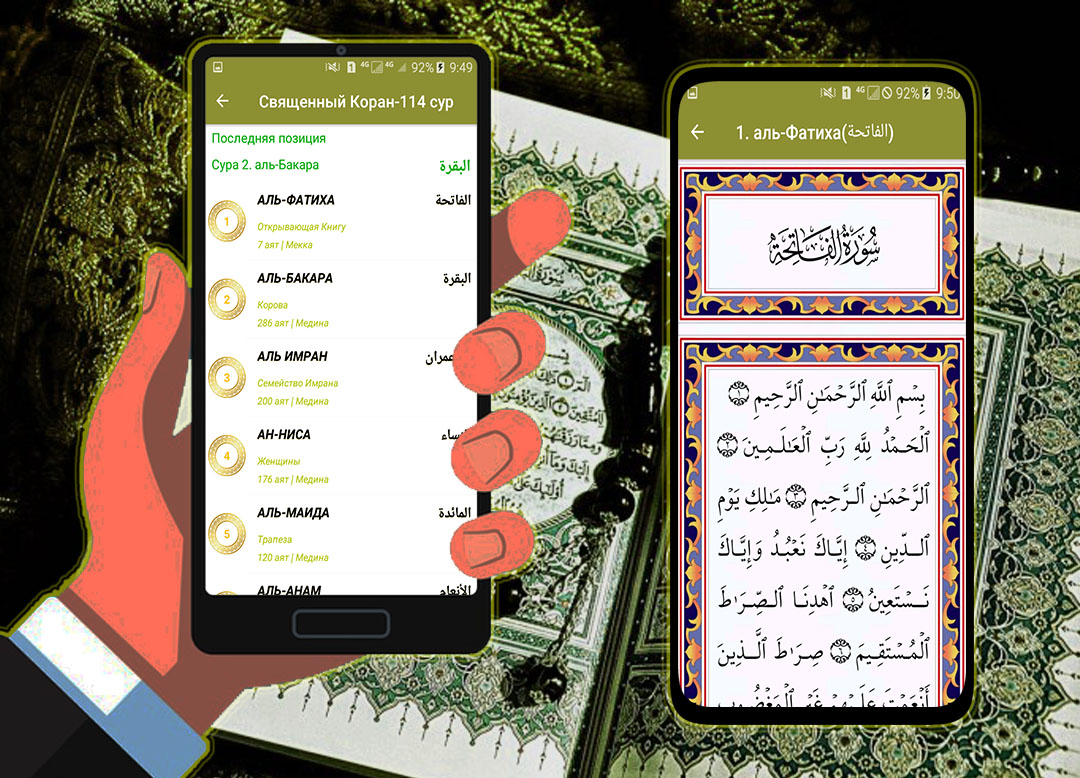 92% 9:49
Священный Коран-114 сур
Последняя позиция
Сура 2. аль-Бакара البقرة
1 АЛЬ-ФАТИХА الفاتحة
Открывающая Книгу
7 аят | Мекка
2 АЛЬ-БАКАРА البقرة
Корова
286 аят | Медина
3 АЛЬ ИМРАН عمران
Семейство Имрана
200 аят | Медина
4 АН-НИСА
Женщины
176 аят | Медина
5 АЛЬ-МАИДА المائدة
Трапеза
120 аят | Медина
АЛЬ-АНАМ الأنعام
4G 92% 9:50
1. аль-Фатиха(الفاتحة)
سُورَةُ الفَاتِحَةِ
بِسْمِ ٱللَّهِ ٱلرَّحْمَـٰنِ ٱلرَّحِيمِ ١
ٱلْحَمْدُ لِلَّهِ رَبِّ ٱلْعَـٰلَمِينَ ٢
ٱلرَّحْمَـٰنِ ٱلرَّحِيمِ ٣ مَـٰلِكِ يَوْمِ
ٱلدِّينِ ٤ إِيَّاكَ نَعْبُدُ وَإِيَّاكَ
نَسْتَعِينُ ٥ ٱهْدِنَا ٱلصِّرَٰطَ
ٱلْمُسْتَقِيمَ ٦ صِرَٰطَ ٱلَّذِينَ
أَنْعَمْتَ عَلَيْهِمْ غَيْرِ ٱلْمَغْضُوبِ